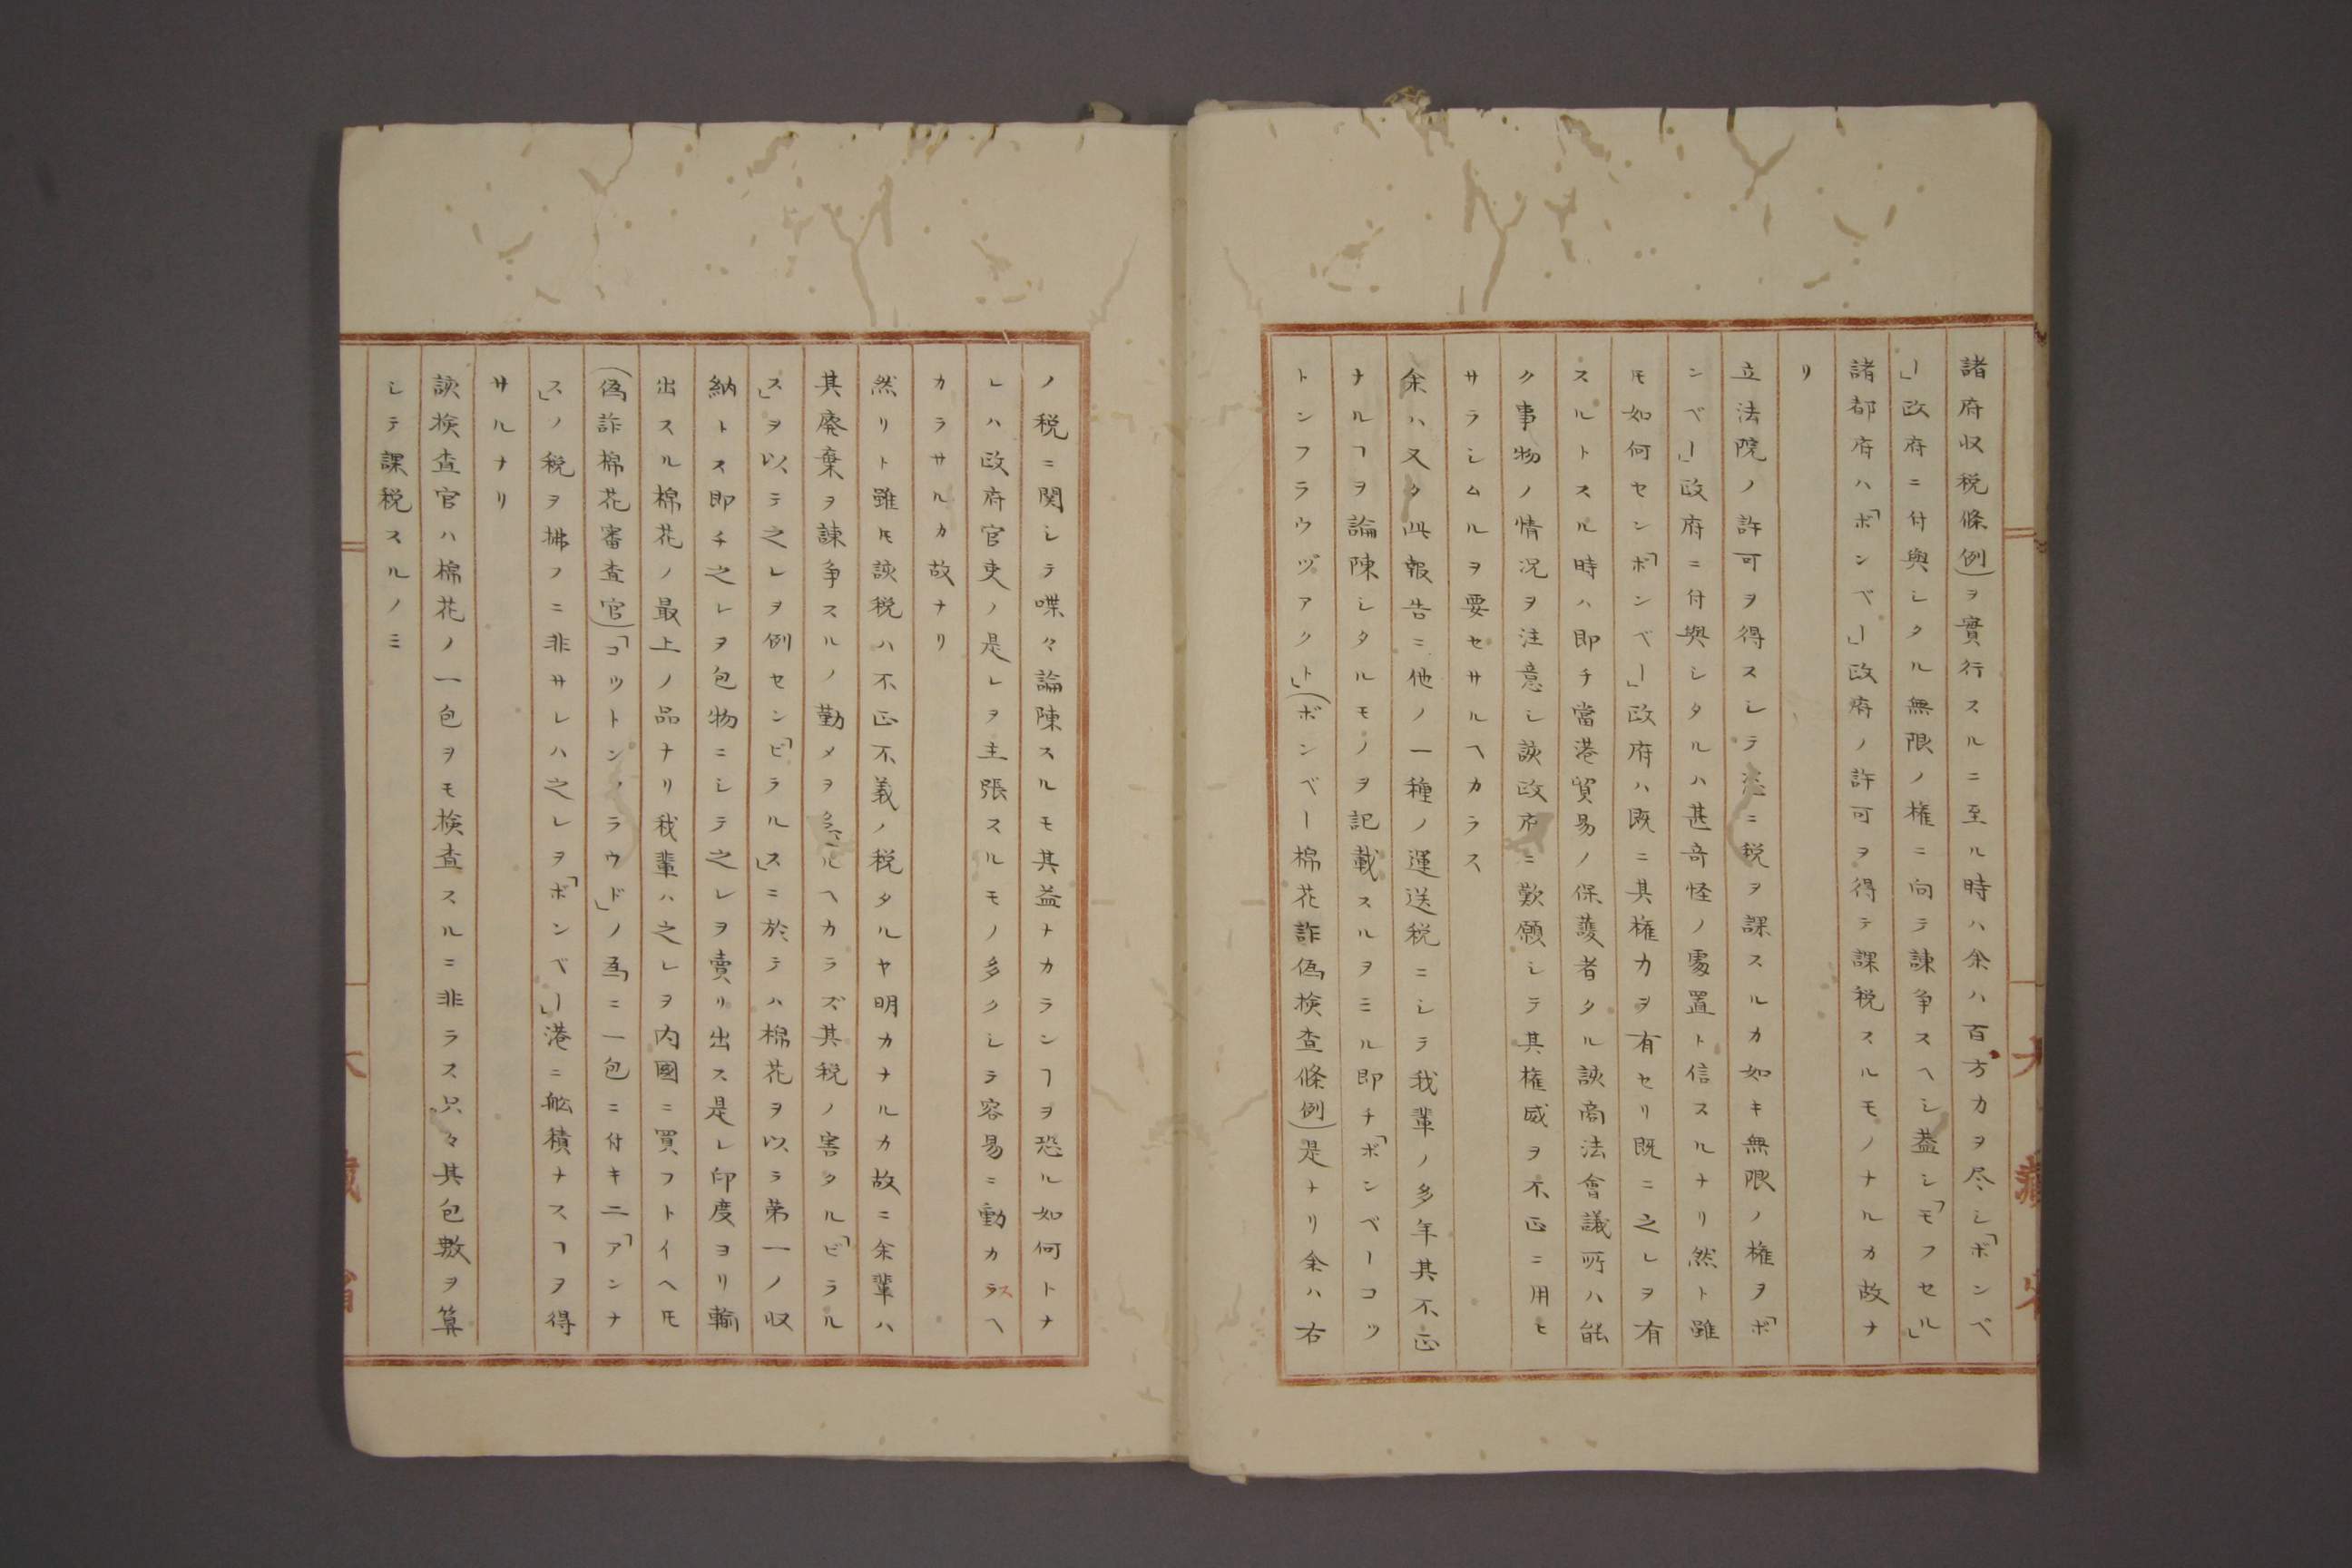 諸府収税條例)ヲ實行スルニ至ル時ハ余ハ百方カヲ尽シ「ボンベ
ー」政府ニ付與シタル無限ノ権ニ向テ諌争スヘシ蓋シ「モフセル」
諸都府ハ「ボンベー」政府ノ許可ヲ得テ課税スルモノナルカ故ナ
リ
立法院ノ許可ヲ得スシテ恣ニ税ヲ課スルカ如キ無限ノ権ヲ「ボ
ンベー」政府ニ付與シタルハ甚奇怪ノ處置ト信スルナリ然ト雖
モ如何セン「ボンベー」政府ハ既ニ其権力ヲ有セリ既ニ之レヲ有
スルトスル時ハ即チ當港貿易ノ保護者タル該商法會議所ハ能
ク事物ノ情況ヲ注意シ該政府ニ歎願シテ其権威ヲ不正ニ用ヒ
サラシムルヲ要セサルヘカラス
余ハ又タ此報告ニ他ノ一種ノ運送税ニシテ我輩ノ多年其不正
ナルヿヲ論陳シタルモノヲ記載スルヲミル即チ「ボンベーコッ
トンフラウヅアクト」(ボンベー棉花詐偽検査條例)是ナリ余ハ右
ノ税ニ関シテ喋々論陳スルモ其益ナカランヿヲ恐ル如何トナ
レハ政府官吏ノ是レヲ主張スルモノ多クシテ容易ニ動カラスヘ
カラサルカ故ナリ
然リト雖𪜈該税ハ不正不義ノ税タルヤ明カナルカ故ニ余輩ハ
其廃棄ヲ諌争スルノ勤メヲ怠ルヘカラズ其税ノ害タル「ビラル
ス」ヲ以テ之レヲ例セン「ビラルス」ニ於テハ棉花ヲ以テ第一ノ収
納トス即チ之レヲ包物ニシテ之レヲ賣リ出ス是レ印度ヨリ輸
出スル棉花ノ最上ノ品ナリ我輩ハ之レヲ内國ニ買フトイヘ𪜈
(偽詐棉花審査官)「コットンフラウド」ノ為ニ一包ニ付キ二「アンナ
ス」ノ税ヲ拂フニ非サレハ之レヲ「ボンベー」港ニ舩積ナスヿヲ得
サルナリ
該検査官ハ棉花ノ一包ヲモ検査スルニ非ラス只々其包數ヲ算
シテ課税スルノミ
大藏省